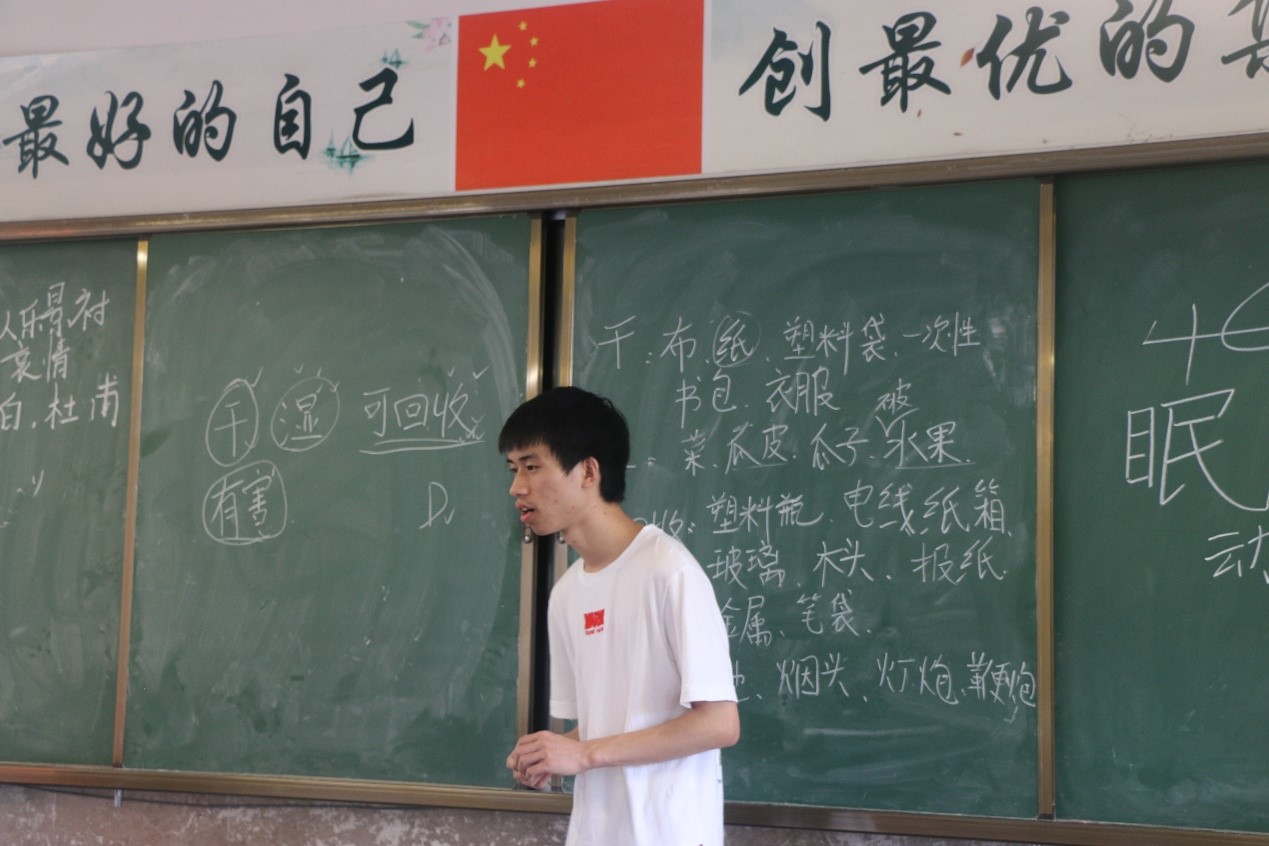 最好的自己
创最优的
人乐景衬
哀情
白、杜甫
干 湿 可回收
有害
D
干、布、纸、塑料袋、一次性
书包、衣服
被
菜、瓜皮、瓜子、水果.
收: 塑料瓶、电线、纸箱、
玻璃、木头、报纸.
金属、笔袋.
、烟头、灯炮、鞭炮
眠
动